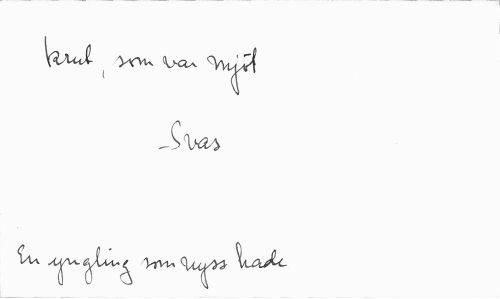 krut, som var mjöl
-Svas
En yngling som nyss hade